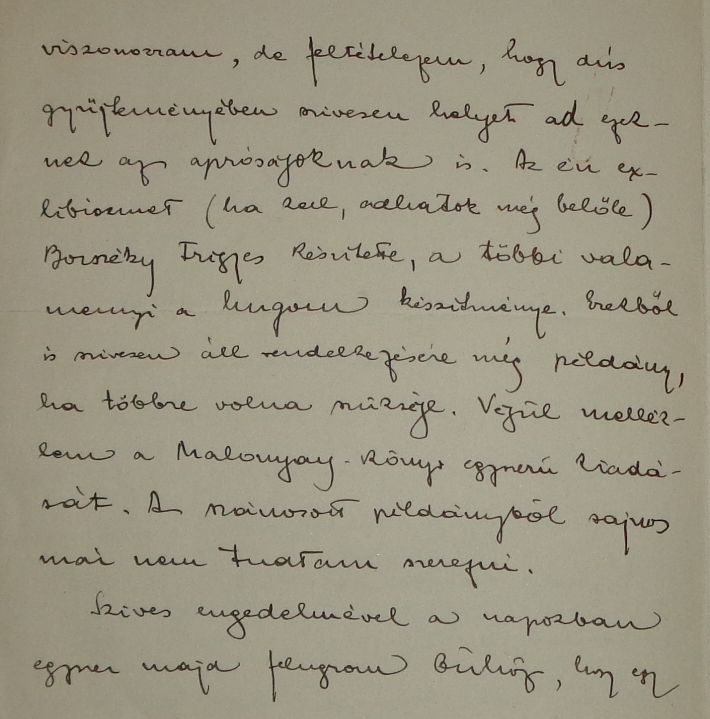 viszonozzam, de feltételezem, hogy dús
gyűjteményében szivesen helyet ad ezek-
nek az apróságoknak is. Az én ex-
librisemet (ha kell, adhatok még belőle)
Frigyes készítette, a többi vala-
mennyi a hugom készítménye. Ezekből
is szivesen áll rendelkezésére még példány,
ha többre volna szüksége. Végül mellék-
lem a Malonyay-könyv egyszerű kiadá-
sát. A számozott példányból sajnos
már nem tudtam szerezni.
Szives engedelmével a napokban
egyszer majd felugrom Önhöz, hogy egy